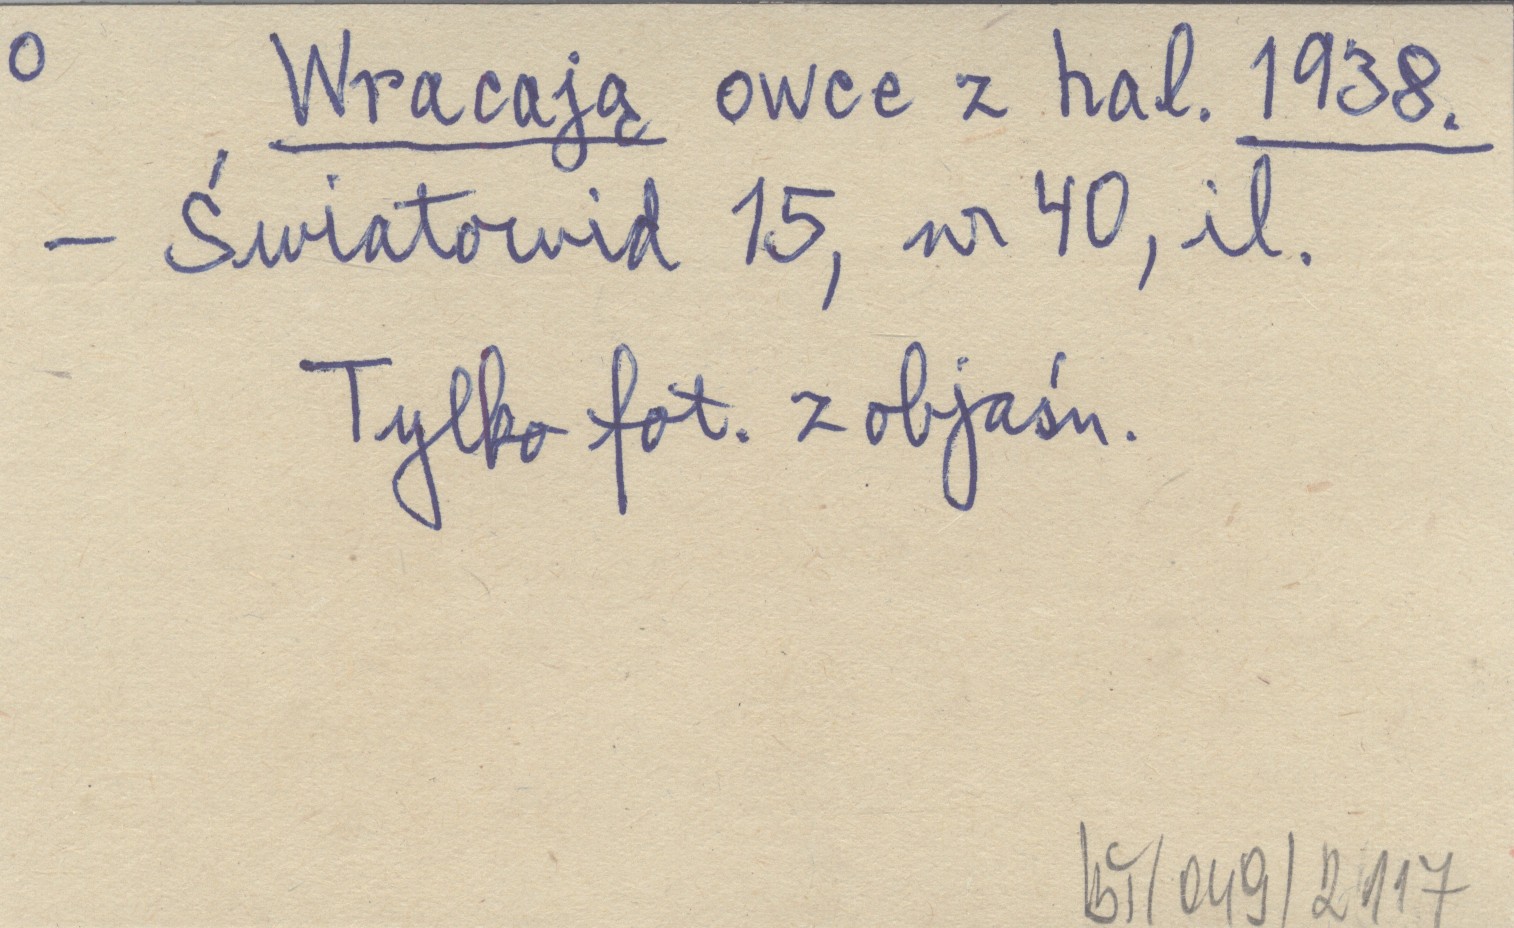 o Wracają owce z hal. 1938.
– Światowid 15, nr 40, il.
Tylko fot. z objaśn.
/049/2117